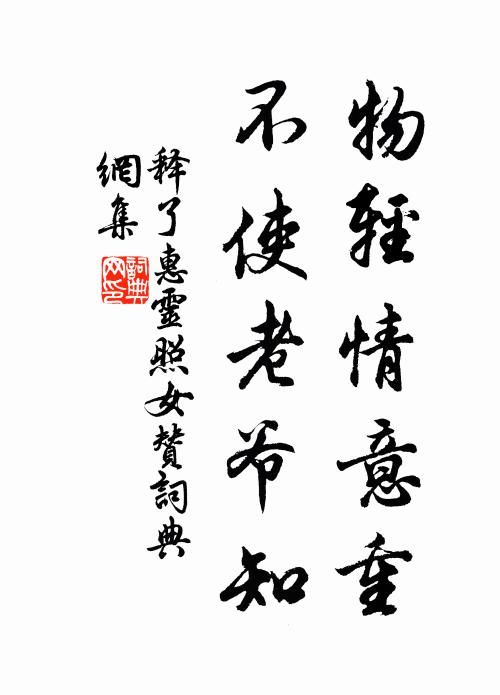 物輕情意重
不使老爺知
释了惠靈照女贊詞典
網集
詞典
网印